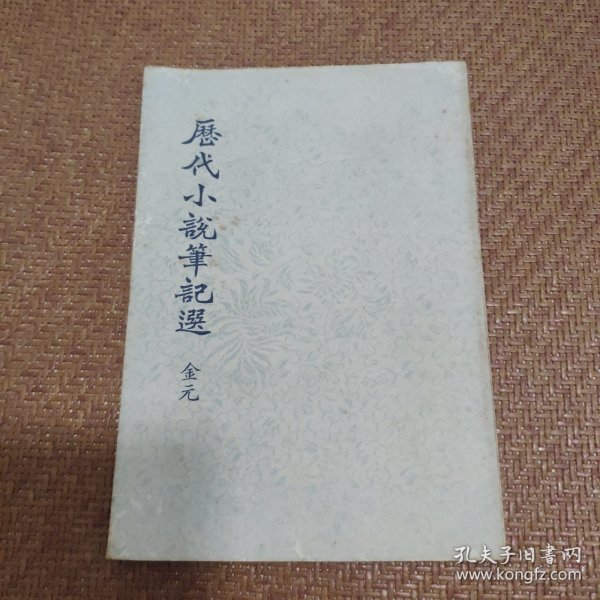 歷代小說筆記選
金元
孔夫子旧書网
www.kongfz.com